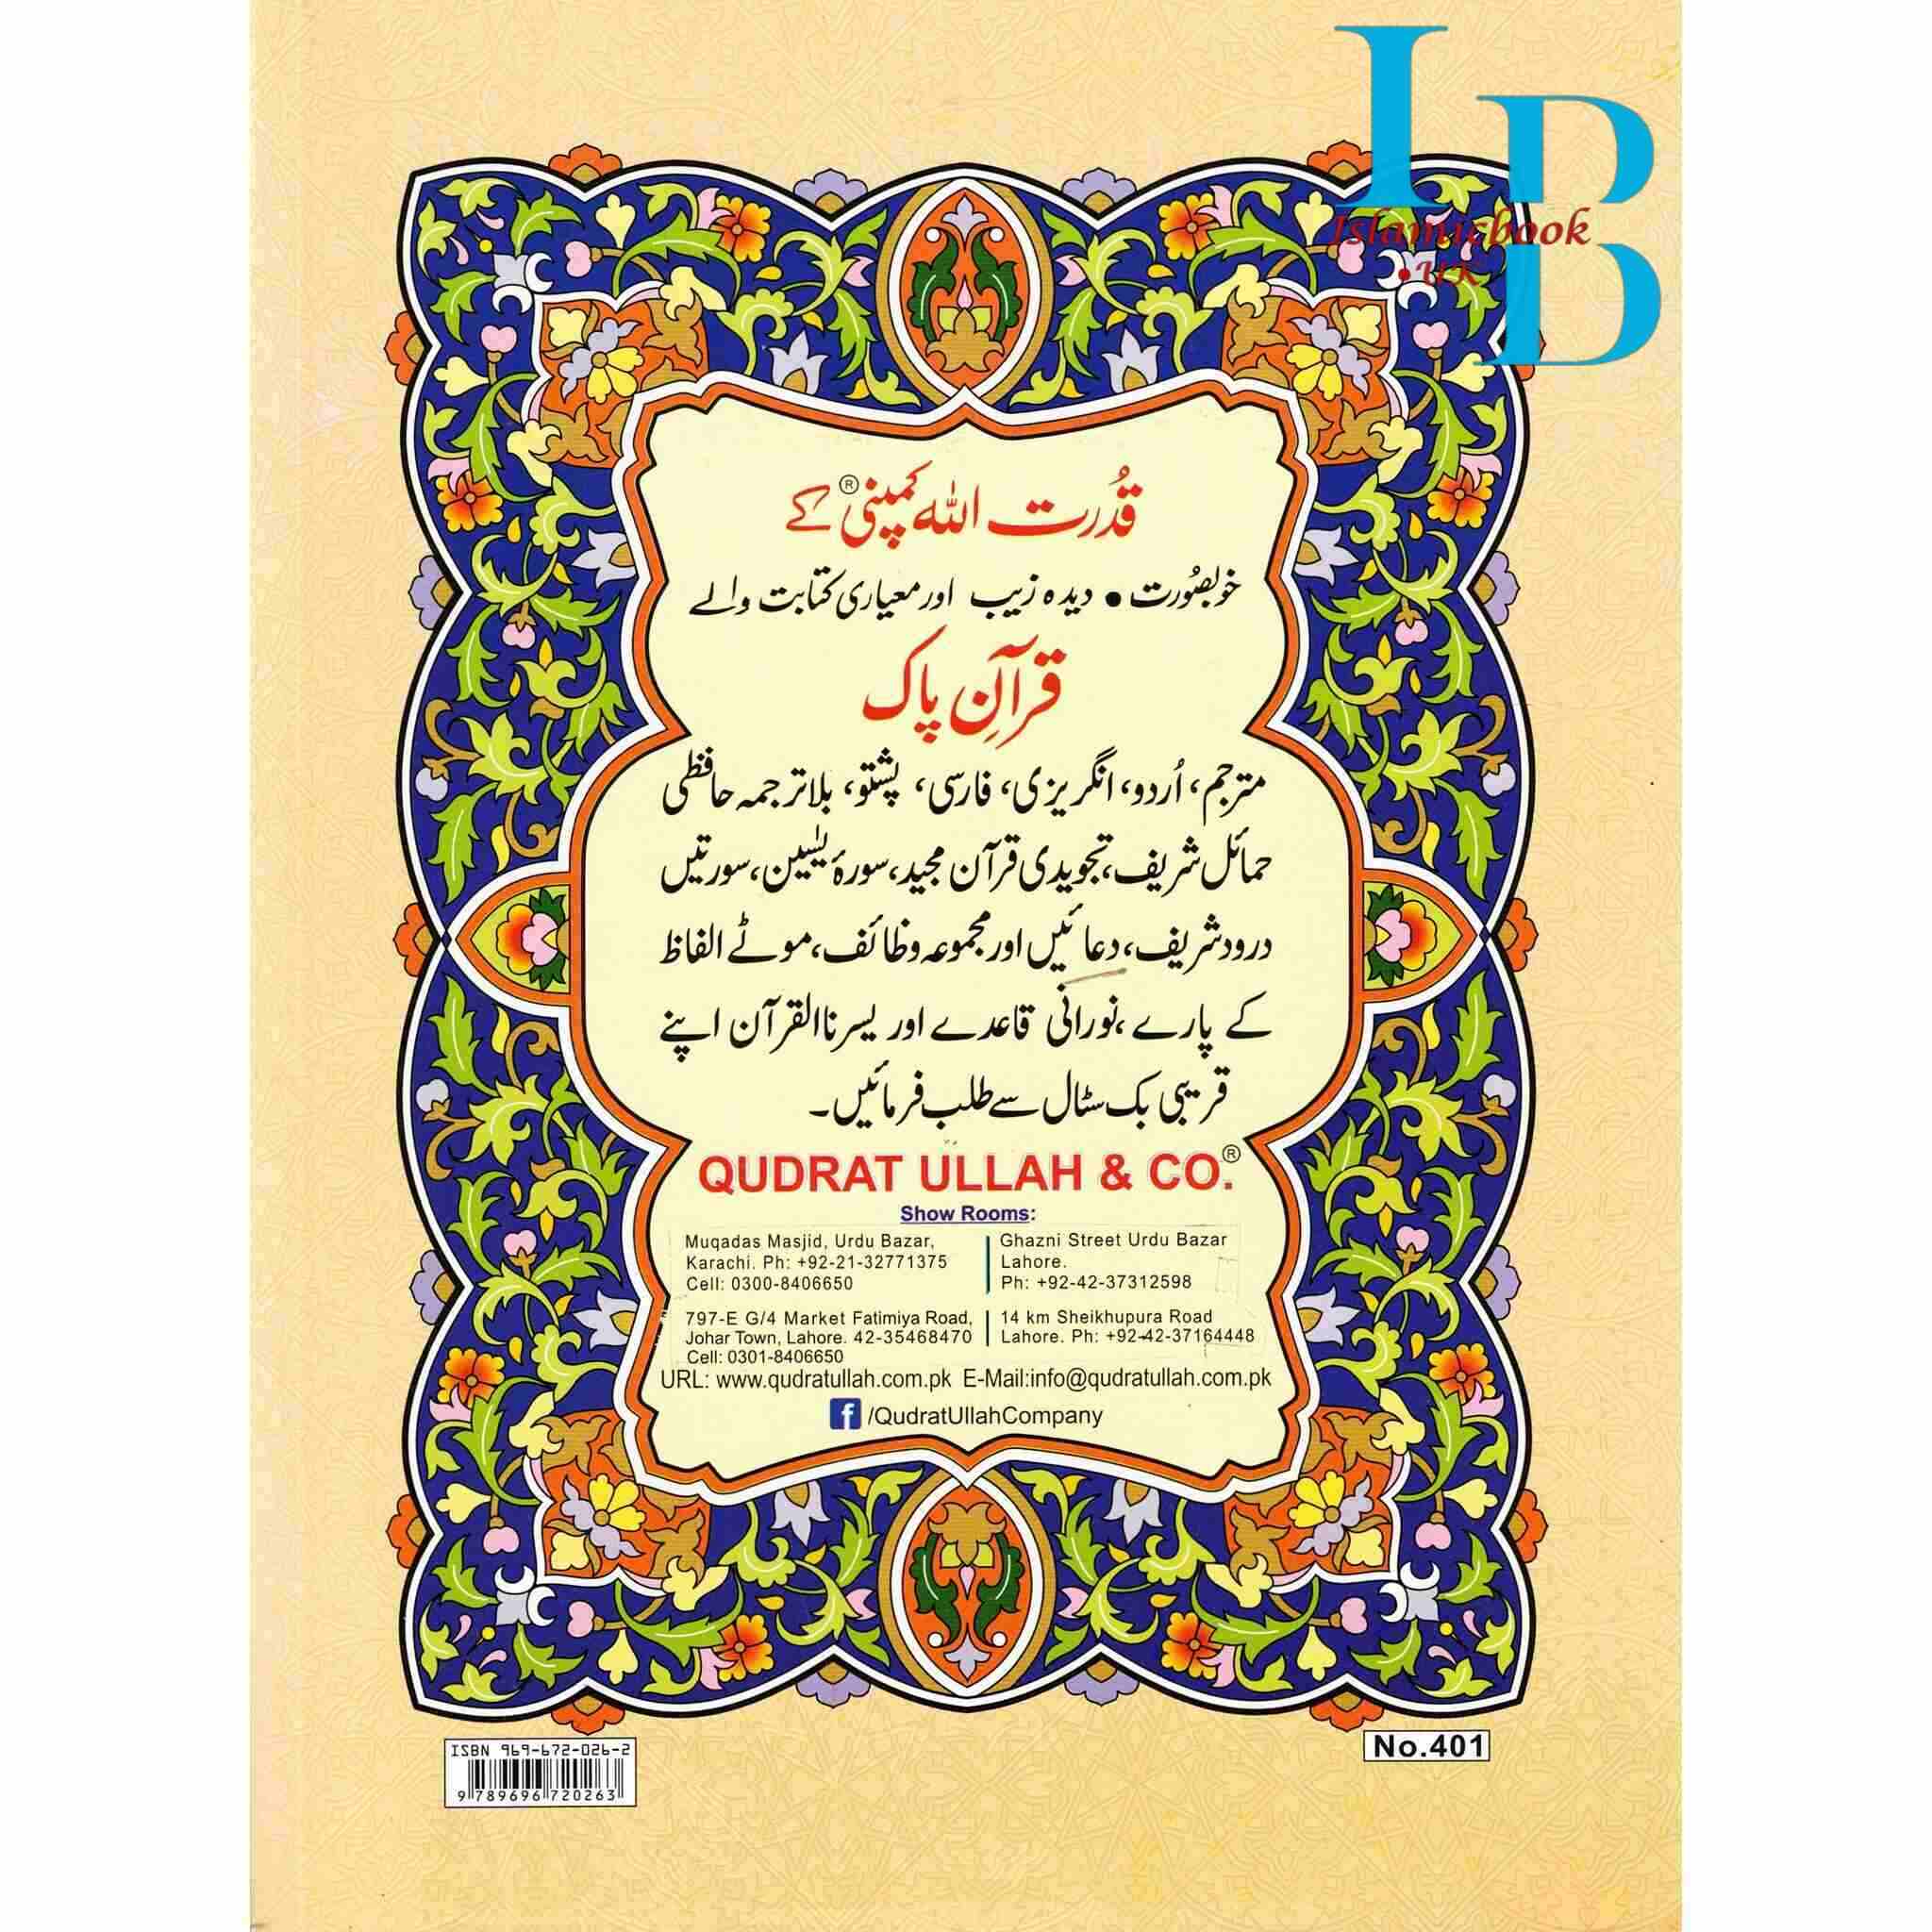 IBB
Islamicbook
.UK
قُدرت اللہ کمپنی® کے
خوبصُورت • دیدہ زیب اور معیاری کتابت والے
قرآنِ پاک
مترجم، اُردو، انگریزی، فارسی، پشتو، بلاترجمہ حافظی
حمائل شریف، تجویدی قرآن مجید، سورۂ یٰسین، سورتیں
درود شریف، دعائیں اور مجموعہ وظائف، موٹے الفاظ
کے پارے، نورانی قاعدے اور یسرنا القرآن اپنے
قریبی بک سٹال سے طلب فرمائیں۔
QUDRAT ULLAH & CO.®
Show Rooms:
Muqadas Masjid, Urdu Bazar,
Karachi. Ph: +92-21-32771375
Cell: 0300-8406650
Ghazni Street Urdu Bazar
Lahore.
Ph: +92-42-37312598
797-E G/4 Market Fatimiya Road,
Johar Town, Lahore. 42-35468470
Cell: 0301-8406650
14 km Sheikhupura Road
Lahore. Ph: +92-42-37164448
URL: www.qudratullah.com.pk E-Mail:info@qudratullah.com.pk
f /QudratUllahCompany
ISBN 969-672-026-2
9 789696 720263
No.401